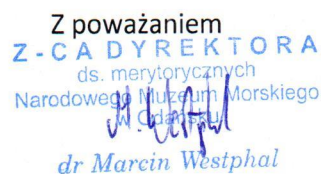 Z poważaniem
Z-CA DYREKTORA
ds. merytorycznych
Narodowego Muzeum Morskiego
w Gdańsku
M. Westphal
dr Marcin Westphal